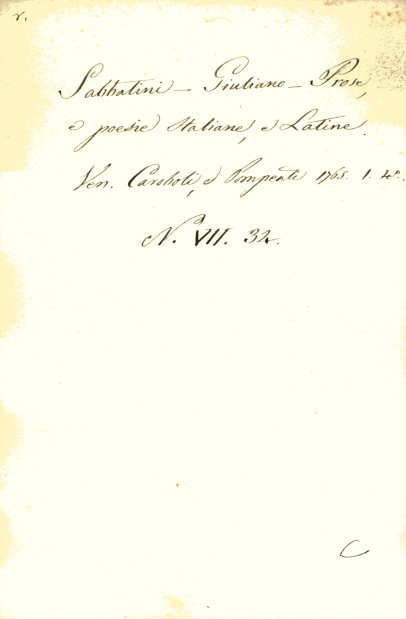 r.
Sabbatini - Giuliano - Prose,
e poesie Italiane, e Latine.
Ven. Caroboli, e Pompeati 1765. 1. 4º.
Nº. VII. 34.
C